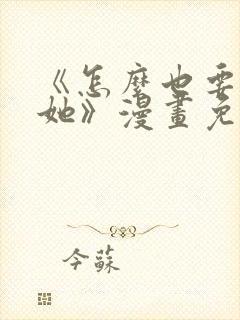 《怎麼也要
她》漫畫免
今蘇